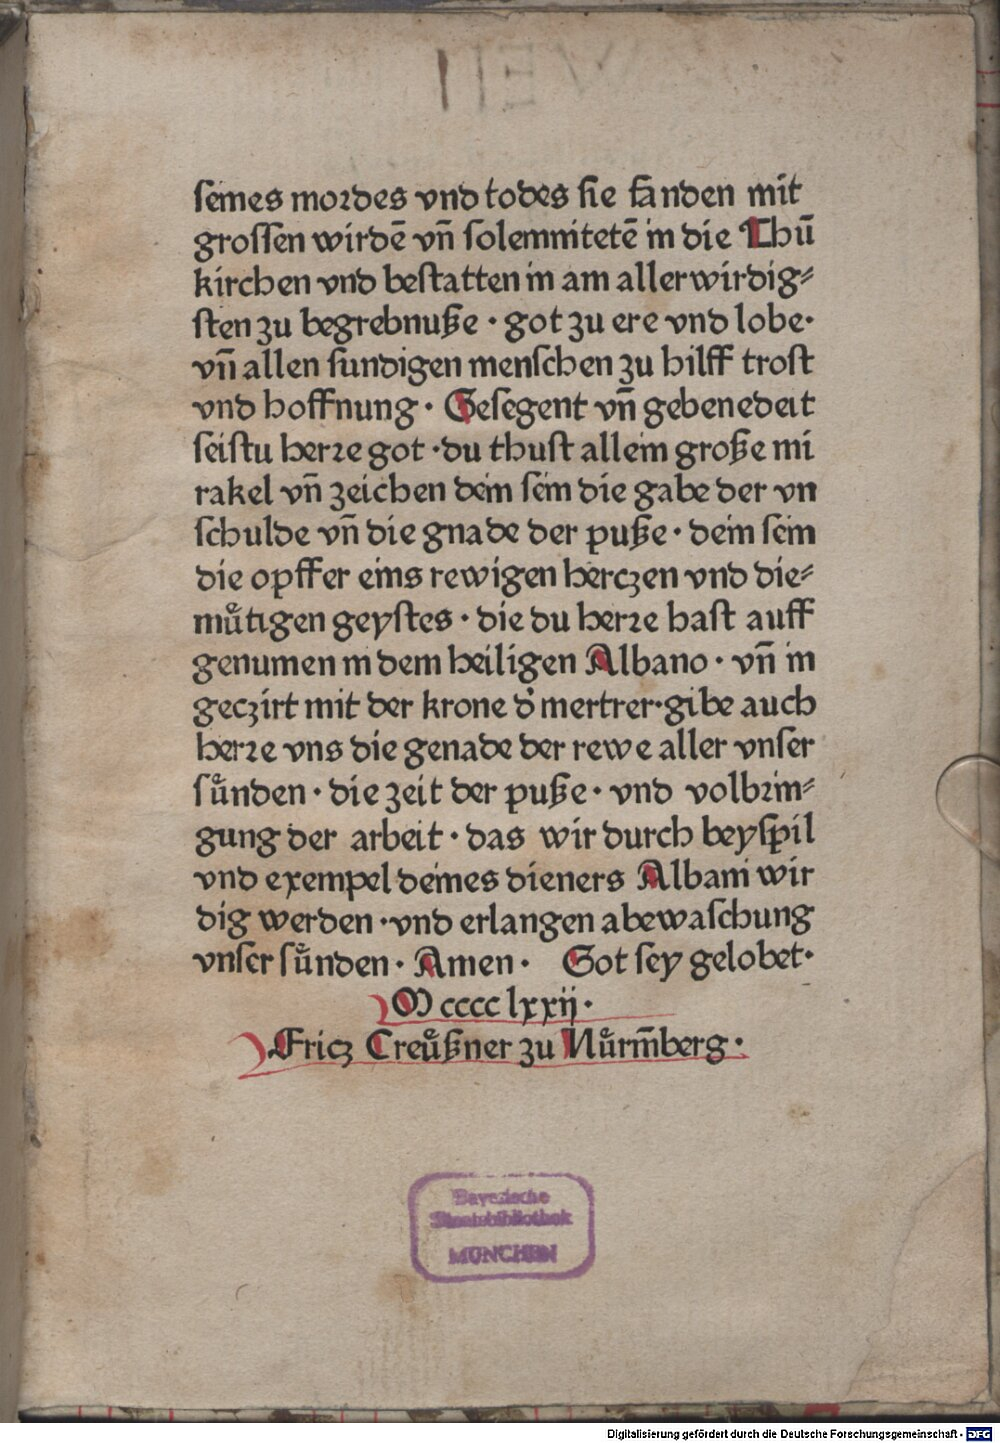 ſeines mordes vnd todes ſie ſanden mit
groſſen wirdē vn̄ ſolemnitetē in die Thū
kirchen vnd beſtatten in am allerwirdig⸗
ſten zu begrebnuße · got zu ere vnd lobe·
vn̄ allen ſundigen menſchen zu hilff troſt
vnd hoffnung · Geſegent vn̄ gebenedeit
ſeiſtu herꝛe got ·du thuſt allein große mi
rakel vn̄ zeichen dein ſein die gabe der vn
ſchulde vn̄ die gnade der puße · dein ſein
die opffer eins rewigen herczen vnd die⸗
muͤtigen geyſtes · die du herꝛe haſt auff
genumen in dem heiligen Albano · vn̄ in
geczirt mit der krone d̾ mertrer·gibe auch
herꝛe vns die genade der rewe aller vnſer
ſuͤnden · die zeit der puße · vnd volbꝛin⸗
gung der arbeit · das wir durch beyſpil
vnd exempel deines dieners Albani wir
dig werden ·vnd erlangen abewaſchung
vnſer ſuͤnden · Amen · Got ſey gelobet·
M cccc lxxij ·
Fricz Creuͤßner zu Nuͤrm̄berg ·
Bayerische
Staatsbibliothek
MÜNCHEN
Digitalisierung gefördert durch die Deutsche Forschungsgemeinschaft - DFG